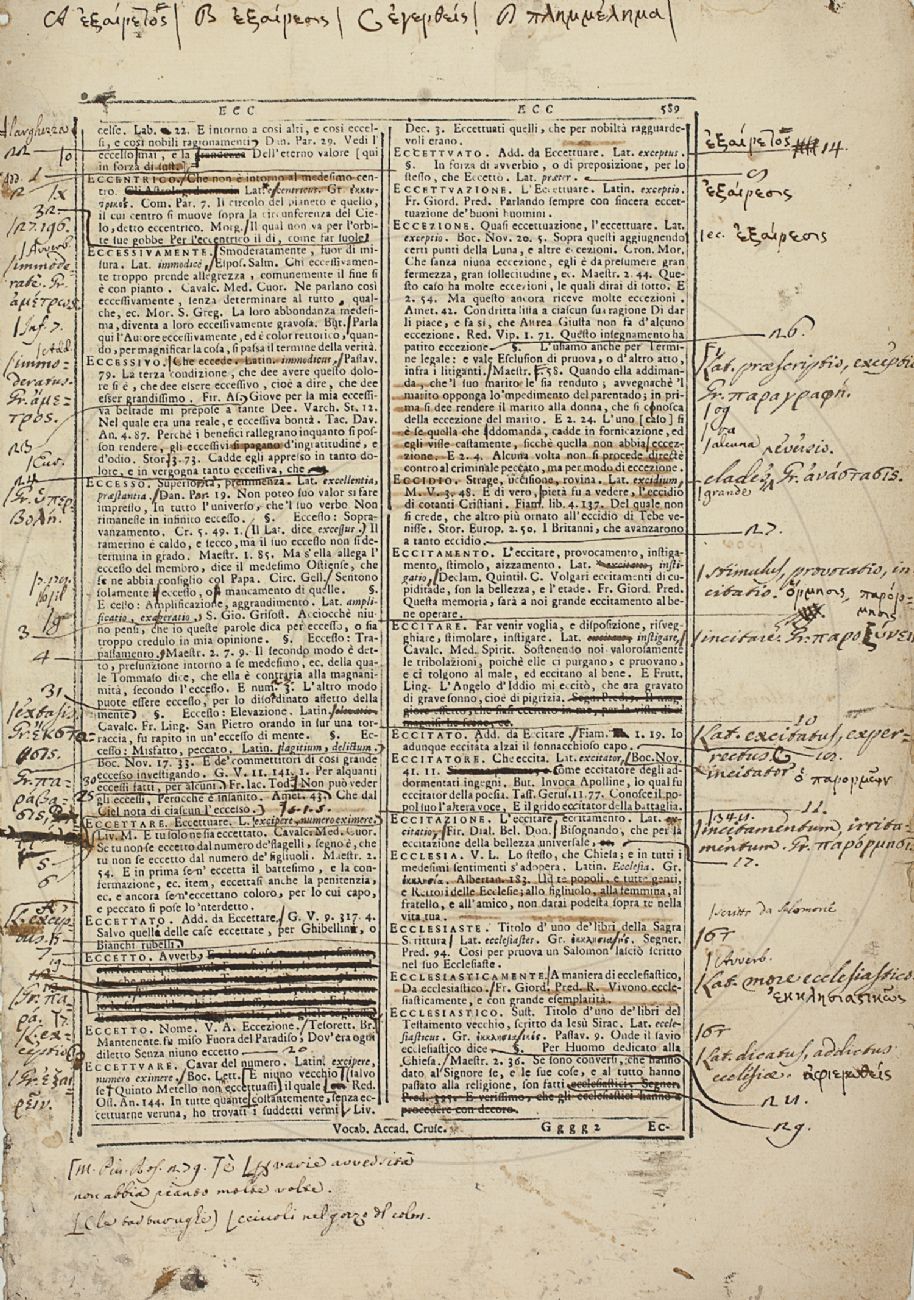 A ἐξαίρετος | B ἐξαίρεσις | C ἐγερθείς | D πλημμέλημα |
E C C
celse. Lab. 22. E intorno a così alti, e così eccel-
si, e così nobili ragionamenti. Dan. Par. 29. Vedi l'
eccelso mai, e la Dell'eterno valore [qui
in forza di sust.
ECCENTRICO. Che non è intorno al medesimo cen-
tro. Lat. eccentricus. Gr. ἐκκεν-
τρικός. Com. Par. 7. Il circolo del pianeto e quello,
il cui centro si muove sopra la circunferenza del Cie-
lo, detto eccentrico. Morg. Il qual non va per l'orbi-
te sue gobbe Per l'eccentrico il dì, come far suole
ECCESSIVAMENTE. Smoderatamente, fuor di mi-
sura. Lat. immodicè. Espos. Salm. Chi eccessivamen-
te troppo prende allegrezza, comunemente il fine si
è con pianto. Cavalc. Med. Cuor. Ne parlano così
eccessivamente, senza determinare al tutto qual-
che, ec. Mor. S. Greg. La loro abbondanza medesi-
ma, diventa a loro eccessivamente gravosa. But. Parla
qui l'Autore eccessivamente, ed è color rettorico, quan-
do, per magnificar la cosa, si passa il termine della verità.
ECCESSIVO. Che eccede. Latin. immodicus, Passav.
79. La terza condizione, che dee avere questo dolo-
re si è, che dee essere eccessivo, cioè a dire, che dee
esser grandissimo. Fir. As. Giove per la mia eccessi-
va beltade mi prepose a tante Dee. Varch. St. 12.
Nel quale era una reale, e eccessiva bontà. Tac. Dav.
An. 4. 87. Perchè i benefici rallegrano inquanto si pos-
son rendere, gli eccessivi si pagano d'ingratitudine, e
d'odio. Stor. 3. 73. Cadde egli appresso in tanto do-
lore, e in vergogna tanto eccessiva, che
ECCESSO. Superiorità, preminenza. Lat. excellentia,
præstantia. Dan. Par. 19. Non poteo suo valor si fare
impresso, In tutto l'universo, che 'l suo verbo Non
rimanesse in infinito eccesso. §. Eccesso: Sopra-
vanzamento. Cr. 5. 49. 1. (Il Lat. dice excessus.) Il
ramerino è caldo, e secco, ma il suo eccesso non si de-
termina in grado. Maestr. 1. 85. Ma s'ella allega l'
eccesso del membro, dice il medesimo Ostiense, che
se ne abbia consiglio col Papa. Circ. Gell. Sentono
solamente l'eccesso, o mancamento di quelle. §.
Eccesso: Amplificazione, aggrandimento. Lat. ampli-
ficatio, exageratio. S. Gio. Grisost. Acciocchè niu-
no pensi, che io queste parole dica per eccesso, o sia
troppo credulo in mia opinione. §. Eccesso: Tra-
passamento. Maestr. 2. 7. 9. Il secondo modo è det-
to, presunzione intorno a se medesimo, ec. della qua-
le Tommaso dice, che ella è contraria alla magnani-
mità, secondo l'eccesso. E num. 3. L'altro modo
puote essere eccesso, per lo disordinato assetto della
mente. §. Eccesso: Elevazione. Latin.
Cavalc. Fr. Ling. San Pietro orando in sur una tor-
raccia, fu rapito in un'eccesso di mente. §. Ec-
cesso: Misfatto, peccato. Latin. flagitium, delictum.
Boc. Nov. 17. 33. E de' commettitori di così grande
eccesso investigando. G. V. 11. 141. 1. Per alquanti
eccessi fatti, per alcuni. Fr. Iac. Tod. Non può veder
gli eccessi, Perocchè è insanito. Amet. 43. Che dal
Ciel nota di ciascun l'eccesso.
ECCETTARE. Eccettuare. L. excipere, numero eximere.
Liv. M. E tu solo ne sia eccettato. Cavalc. Med. Cuor.
Se tu non se eccetto dal numero de' flagelli, segno è, che
tu non se eccetto dal numero de' figliuoli. Maestr. 2.
54. E in prima se n'eccetta il battesimo, e la con-
fermazione, ec. item, eccettasi anche la penitenzia,
ec. e ancora se n'eccettano coloro, per lo cui capo,
e peccato si pose lo 'nterdetto.
ECCETTATO. Add. da Eccettare. G. V. 9. 317. 4.
Salvo quelli delle case eccettate, per Ghibellini, o
Bianchi rubelli.
ECCETTO. Avverb.
ECCETTO. Nome. V. A. Eccezione. Tesorett. Br.
Mantenente fu miso Fuora del Paradiso, Dov'era ogni
diletto Senza niuno eccetto 20.
ECCETTUARE. Cavar del numero. Latin. excipere,
numero eximere. Boc. Lett. E niuno vecchio salvo
se Quinto Metello non eccettuassi, il quale Red.
Oss. An. 144. In tutte quante costantemente, senza ec-
cettuarne veruna, ho trovati i suddetti vermi. Liv.
E C C 589
Dec. 3. Eccettuati quelli, che per nobiltà ragguarde-
voli erano.
ECCETTUATO. Add. da Eccettuare. Lat. exceptus.
§. In forza di avverbio, o di preposizione, per lo
stesso, che Eccettò. Lat. præter.
ECCETTUAZIONE. L'Eccettuare. Latin. exceptio.
Fr. Giord. Pred. Parlando sempre con sincera eccet-
tuazione de' buoni huomini.
ECCEZIONE. Quasi eccettuazione, l'eccettuare. Lat.
exceptio. Boc. Nov. 20. 5. Sopra questi aggiugnendo
certi punti della Luna, e altre eccezioni. Cron. Mor.
Che sanza niuna eccezione, egli è da presumere gran
fermezza, gran sollecitudine, ec. Maestr. 2. 44. Que-
sto caso ha molte eccezioni, le quali dirai di sotto. E
2. 54. Ma questo ancora riceve molte eccezioni.
Amet. 42. Con dritta lista a ciascun sua ragione Di dar
li piace, e fa sì, che Aurea Giusta non fa d'alcuno
eccezione. Red. Vip. 1. 71. Questo insegnamento ha
patito eccezione §. L'usiamo anche per Termi-
ne legale: e vale Esclusion di pruova, o d'altro atto,
infra i litiganti. Maestr. 58. Quando ella addiman-
da, che 'l suo marito le sia renduto; avvegnachè 'l
marito opponga lo 'mpedimento del parentado; in pri-
ma si dee rendere il marito alla donna, che si conosca
della eccezione del marito. E 2. 24. L'uno [calo] si
è se quella che l'addomanda, cadde in fornicazione, ed
egli visse castamente, sicchè quella non abbia eccez-
zione. E 2. 4. Alcuna volta non si procede dirette
contro al criminale peccato, ma per modo di eccezione.
ECCIDIO. Strage, uccisione, rovina. Lat. excidium,
M. V. 3. 48. E di vero, pietà fu a vedere, l'eccidio
di cotanti Cristiani. Fiam. lib. 4. 137. Del quale non
si crede, che altro più ornato all'eccidio di Tebe ve-
nisse. Stor. Europ. 2. 50. I Britanni, che avanzarono
a tanto eccidio.
ECCITAMENTO. L'eccitare, provocamento, instiga-
mento, stimolo, aizzamento. Lat. insti-
gatio. Declam. Quintil. C. Volgari eccitamenti di cu-
piditade, son la bellezza, e l'etade. Fr. Giord. Pred.
Questa memoria, sarà a noi grande eccitamento al be-
ne operare.
ECCITARE. Far venir voglia, e disposizione, risveg-
ghiare, stimolare, instigare. Lat. instigare.
Cavalc. Med. Spirit. Sostenendo noi valorosamente
le tribolazioni, poichè elle ci purgano, e pruovano,
e ci tolgono al male, ed eccitano al bene. E Frutt.
Ling. L'Angelo d'Iddio mi eccitò, che era gravato
di grave sonno, cioè di pigrizia.
ECCITATO. Add. da Eccitare. Fiam. 1. 19. Io
adunque eccitata alzai il sonnacchioso capo.
ECCITATORE. Che eccita. Lat. excitator. Boc. Nov.
41. 11. Come eccitatore degli ad-
dormentati ingegni, But. Invoca Apolline, lo qual fu
eccitator della poesia. Tass. Gerus. 11. 77. Conosce il po-
pol suo l'altera voce, E il grido eccitator della battaglia.
ECCITAZIONE. L'eccitare, eccitamento. Lat. ex-
citatio. Fir. Dial. Bel. Don. Bisognando, che per la
eccitazione della bellezza universale,
ECCLESIA. V. L. Lo stesso, che Chiesa; e in tutti i
medesimi sentimenti s'adopera. Latin. Ecclesia. Gr.
ἐκκλησία. Albertan. 183. Udite popoli, e tutte genti,
e Rettori delle Ecclesie; allo figliuolo, alla femmina, al
fratello, e all'amico, non darai podestà sopra te nella
vita tua.
ECCLESIASTE. Titolo d'uno de' libri della Sagra
Scrittura. Lat. ecclesiaster. Gr. ἐκκλησιαστής. Segner.
Pred. 94. Così per pruova un Salomon lasciò scritto
nel suo Ecclesiaste.
ECCLESIASTICAMENTE. A maniera di ecclesiastico,
Da ecclesiastico. Fr. Giord. Pred. R. Vivono eccle-
siasticamente, e con grande esemplarità.
ECCLESIASTICO. Sust. Titolo d'uno de' libri del
Testamento vecchio, scritto da Iesù Sirac. Lat. eccle-
siasticus. Gr. ἐκκλησιαστικός. Passav. 9. Onde il savio
ecclesiastico dice §. Per Huomo dedicato alla
Chiesa. Maestr. 2. 36. Se sono conversi, che hanno
dato al Signore se, e le sue cose, e al tutto hanno
passato alla religione, son fatti ecclesiastici. Segner.
Pred. E verissimo, che gli ecclesiastici hanno a
procedere con decoro.
Vocab. Accad. Crusc. G g g g 2 Ec-
larghezza
Avverb.
immode-
ratè. Gr.
ἀμέτρως
Inf. 7.
Add.
immo-
deratus.
Gr. ἄμε-
τρος.
Gr. ὑπερ-
βολή.
3
4
31
extasis
Gr. ἔκστα-
σις.
Gr. πα-
ράβα-
σις
5
6
Gr. πα-
ρά.
L. ex-
ceptio
Gr. ἐξαι-
ρεῖν.
ἐξαίρετος 14.
ἐξαίρεσις
ec. ἐξαίρεσις
n. 6.
Lat. præscriptio, exceptio
Gr. παραγραφή.
alcuna
eversio.
clades, Gr. ἀνάστασις.
grande
n. 7.
stimulus, provocatio, in-
citatio. ὅρμησις παρόρ-
μησις
incitare. Gr. παροξύνειν
10
Lat. excitatus, exper-
rectus C
incitator ὁ παρορμῶν
11.
incitamentum, irrita-
mentum. Gr. παρόρμησις
12.
scritto da Salomone
167
Avverb.
Lat. more ecclesiastico
ἐκκλησιαστικῶς
167
Lat. dicatus, addictus
ecclesiæ. ἀφιερωθείς
n. 9.
varie avversità
non abbia pianto molte volte.